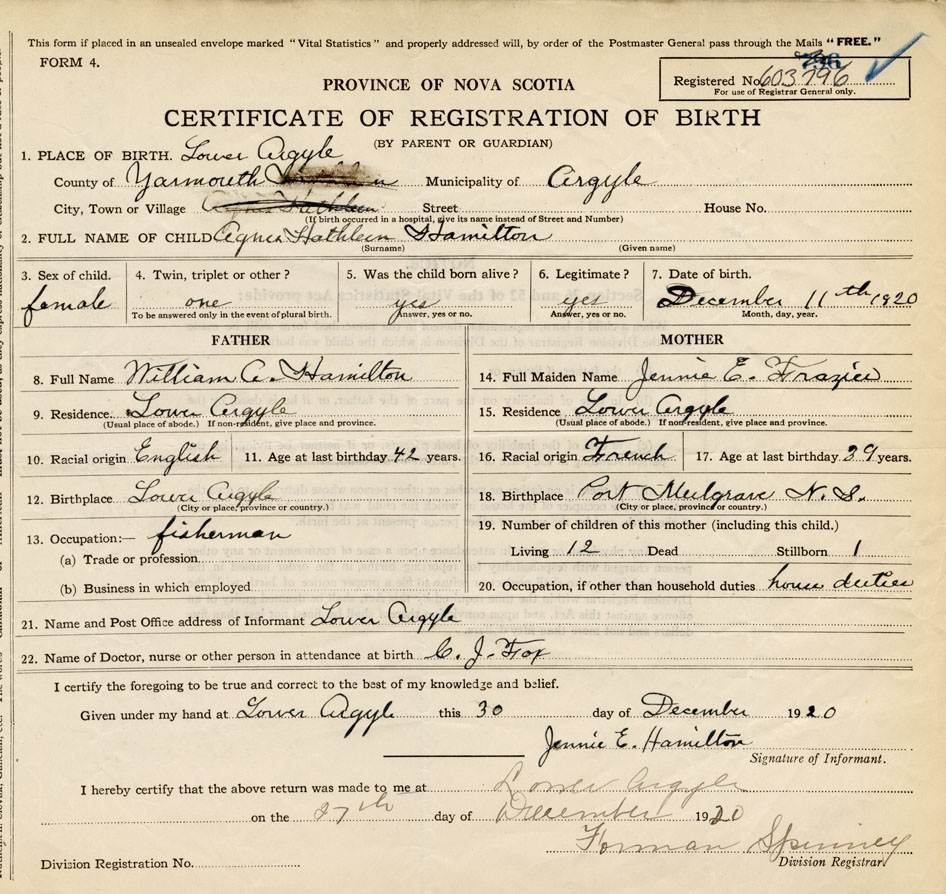 This form if placed in an unsealed envelope marked "Vital Statistics" and properly addressed will, by order of the Postmaster General pass through the Mails "FREE."
FORM 4.
796
Registered No. 603796
For use of Registrar General only.
PROVINCE OF NOVA SCOTIA
CERTIFICATE OF REGISTRATION OF BIRTH
(BY PARENT OR GUARDIAN)
1. PLACE OF BIRTH. Lower Argyle
County of Yarmouth Municipality of Argyle
City, Town or Village Agnes Kathleen Street House No.
(If birth occurred in a hospital, give its name instead of Street and Number)
2. FULL NAME OF CHILD Agnes Kathleen Hamilton
(Surname) (Given name)
3. Sex of child. 4. Twin, triplet or other? 5. Was the child born alive? 6. Legitimate? 7. Date of birth.
female one yes yes December 11th 1920
To be answered only in the event of plural birth. Answer, yes or no. Answer, yes or no. Month, day, year.
FATHER MOTHER
8. Full Name William A. Hamilton 14. Full Maiden Name Jennie E. Frazier
9. Residence. Lower Argyle 15. Residence Lower Argyle
(Usual place of abode.) If non-resident, give place and province. (Usual place of abode.) If non-resident, give place and province.
10. Racial origin English 11. Age at last birthday 42 years. 16. Racial origin French 17. Age at last birthday 39 years.
12. Birthplace Lower Argyle 18. Birthplace Port Mulgrave N. S.
(City or place, province or country.) (City or place, province or country.)
13. Occupation:— fisherman 19. Number of children of this mother (including this child.)
(a) Trade or profession Living 12 Dead Stillborn 1
(b) Business in which employed 20. Occupation, if other than household duties house duties
21. Name and Post Office address of Informant Lower Argyle
22. Name of Doctor, nurse or other person in attendance at birth C. J. Fox
I certify the foregoing to be true and correct to the best of my knowledge and belief.
Given under my hand at Lower Argyle this 30 day of December 1920
Jennie E. Hamilton
Signature of Informant.
I hereby certify that the above return was made to me at Lower Argyle
on the 27th day of December 1920
Forman Spinney
Division Registration No. Division Registrar.